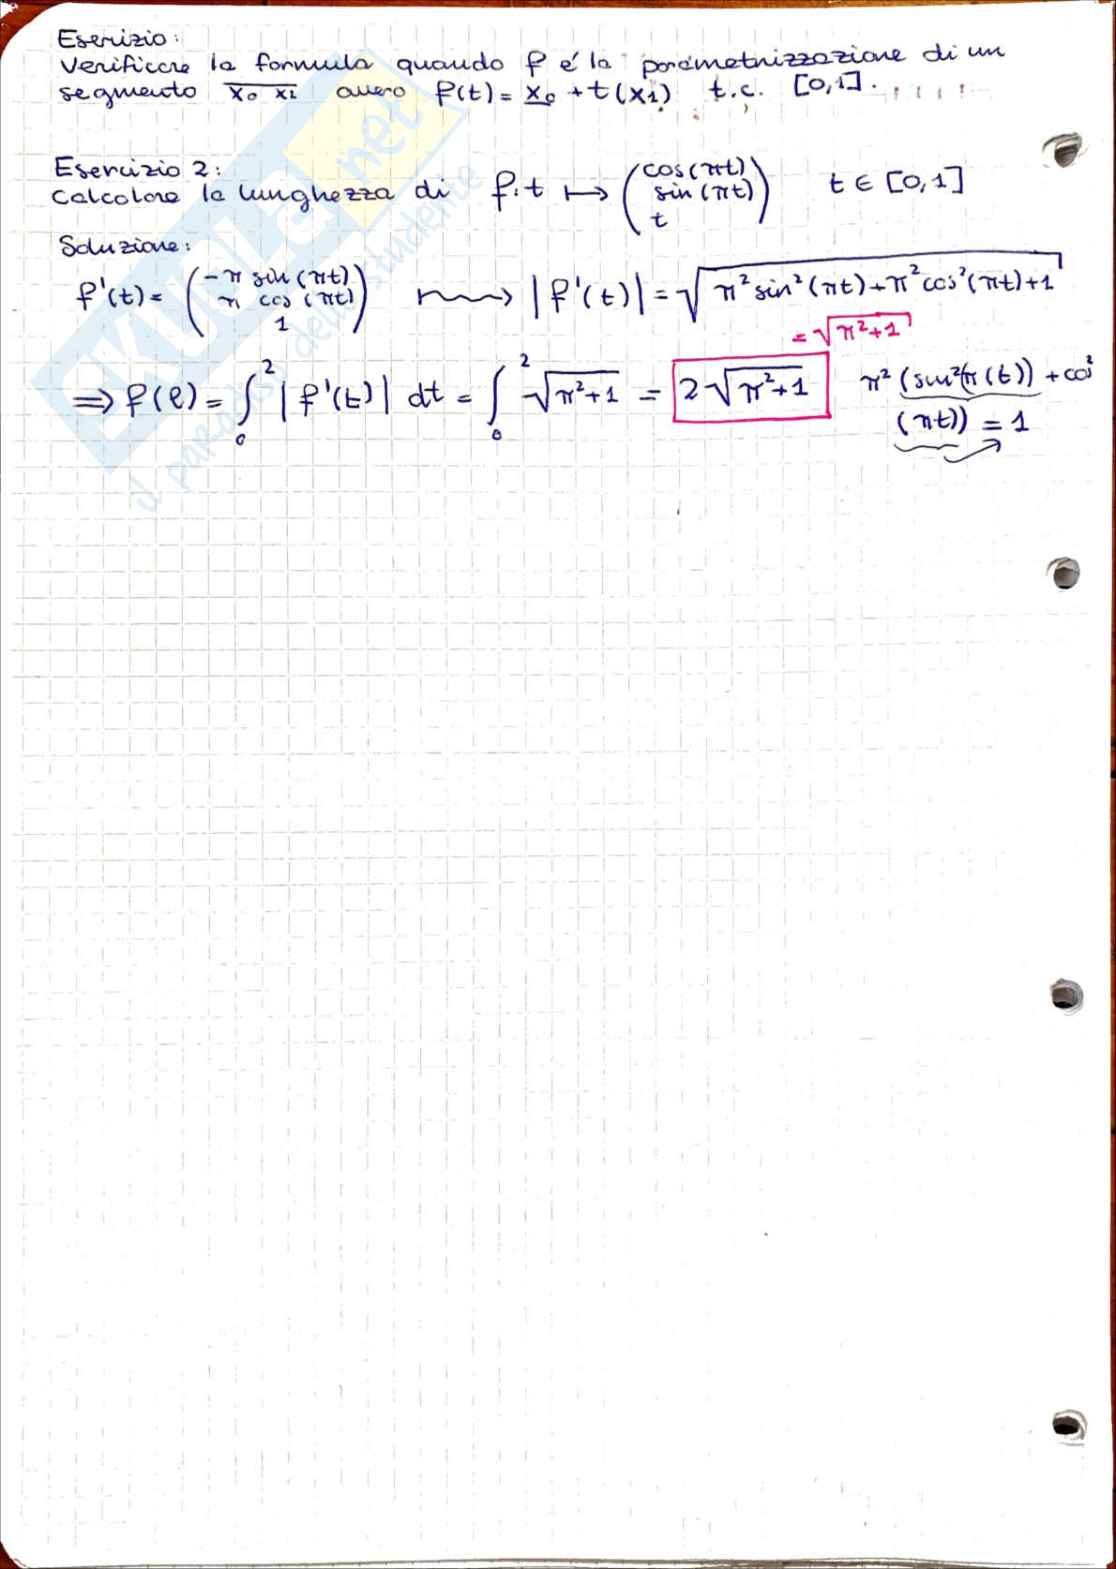 Eserizio:
Verificare la formula quando f é la parametrizzazione di un
segmento x₀ x₁ avvero f(t) = x₀ + t(x₁) t.c. [0,1].
Esercizio 2:
Calcolare la lunghezza di f: t ↦ (cos(πt) sin(πt) t) t ∈ [0,1]
Soluzione:
f'(t) = (-π sin(πt) π cos(πt) 1) ⟿ |f'(t)| = √(π² sin²(πt) + π² cos²(πt) + 1)
= √(π²+1)
⇒ f(e) = ∫₀² |f'(t)| dt = ∫₀² √(π²+1) = 2√(π²+1)
π² (sin²(π(t)) + cos²
(πt)) = 1
SKUOLA.net
il paradiso dello studente